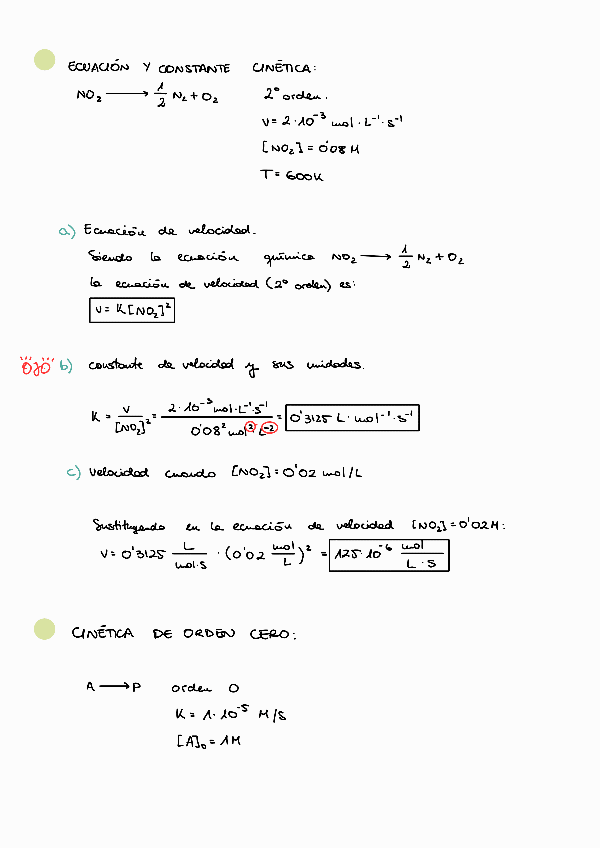 ECUACIÓN Y CONSTANTE CINÉTICA:
NO₂ ⟶ 1/2 N₂ + O₂ 2º orden.
V = 2·10⁻³ mol·L⁻¹·s⁻¹
[NO₂] = 0'08 M
T = 600K
a) Ecuación de velocidad.
Siendo la ecuación química NO₂ ⟶ 1/2 N₂ + O₂
la ecuación de velocidad (2º orden) es:
V = K[NO₂]²
OJO b) constante de velocidad y sus unidades.
K = V/[NO₂]² = 2·10⁻³ mol·L⁻¹·s⁻¹ / 0'08² mol² L⁻² = 0'3125 L·mol⁻¹·s⁻¹
c) Velocidad cuando [NO₂] = 0'02 mol/L
Sustituyendo en la ecuación de velocidad [NO₂] = 0'02M:
V = 0'3125 L/mol·s · (0'02 mol/L)² = 125·10⁻⁶ mol/L·s
CINÉTICA DE ORDEN CERO:
A ⟶ P orden 0
K = 1·10⁻⁵ M/s
[A]₀ = 1M